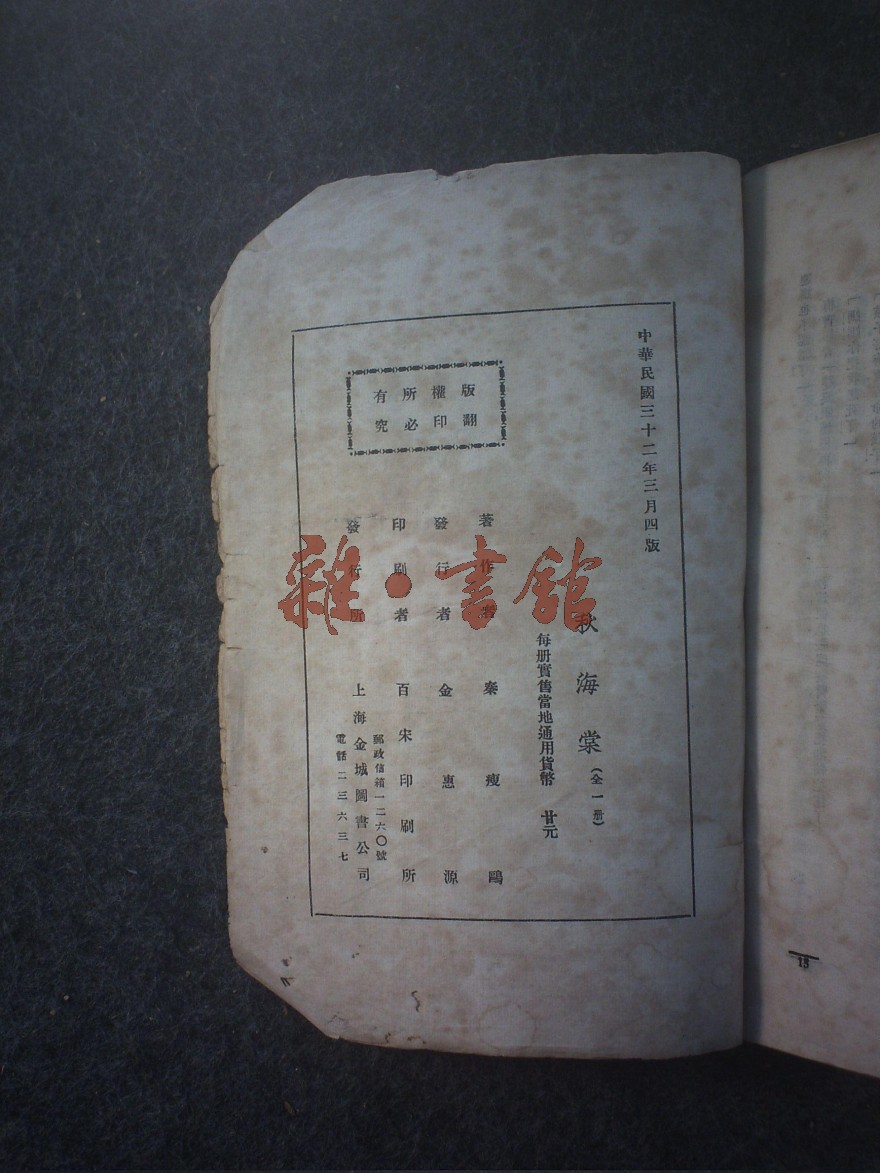 中華民國三十二年三月四版
版權所有
翻印必究
秋海棠（全一册）
每册實售當地通用貨幣 廿元
著作者 秦瘦鷗
發行者 金惠源
印刷者 百宋印刷所
發行所 上海金城圖書公司
郵政信箱一二六〇號
電話二三六三七
雜·書館
15